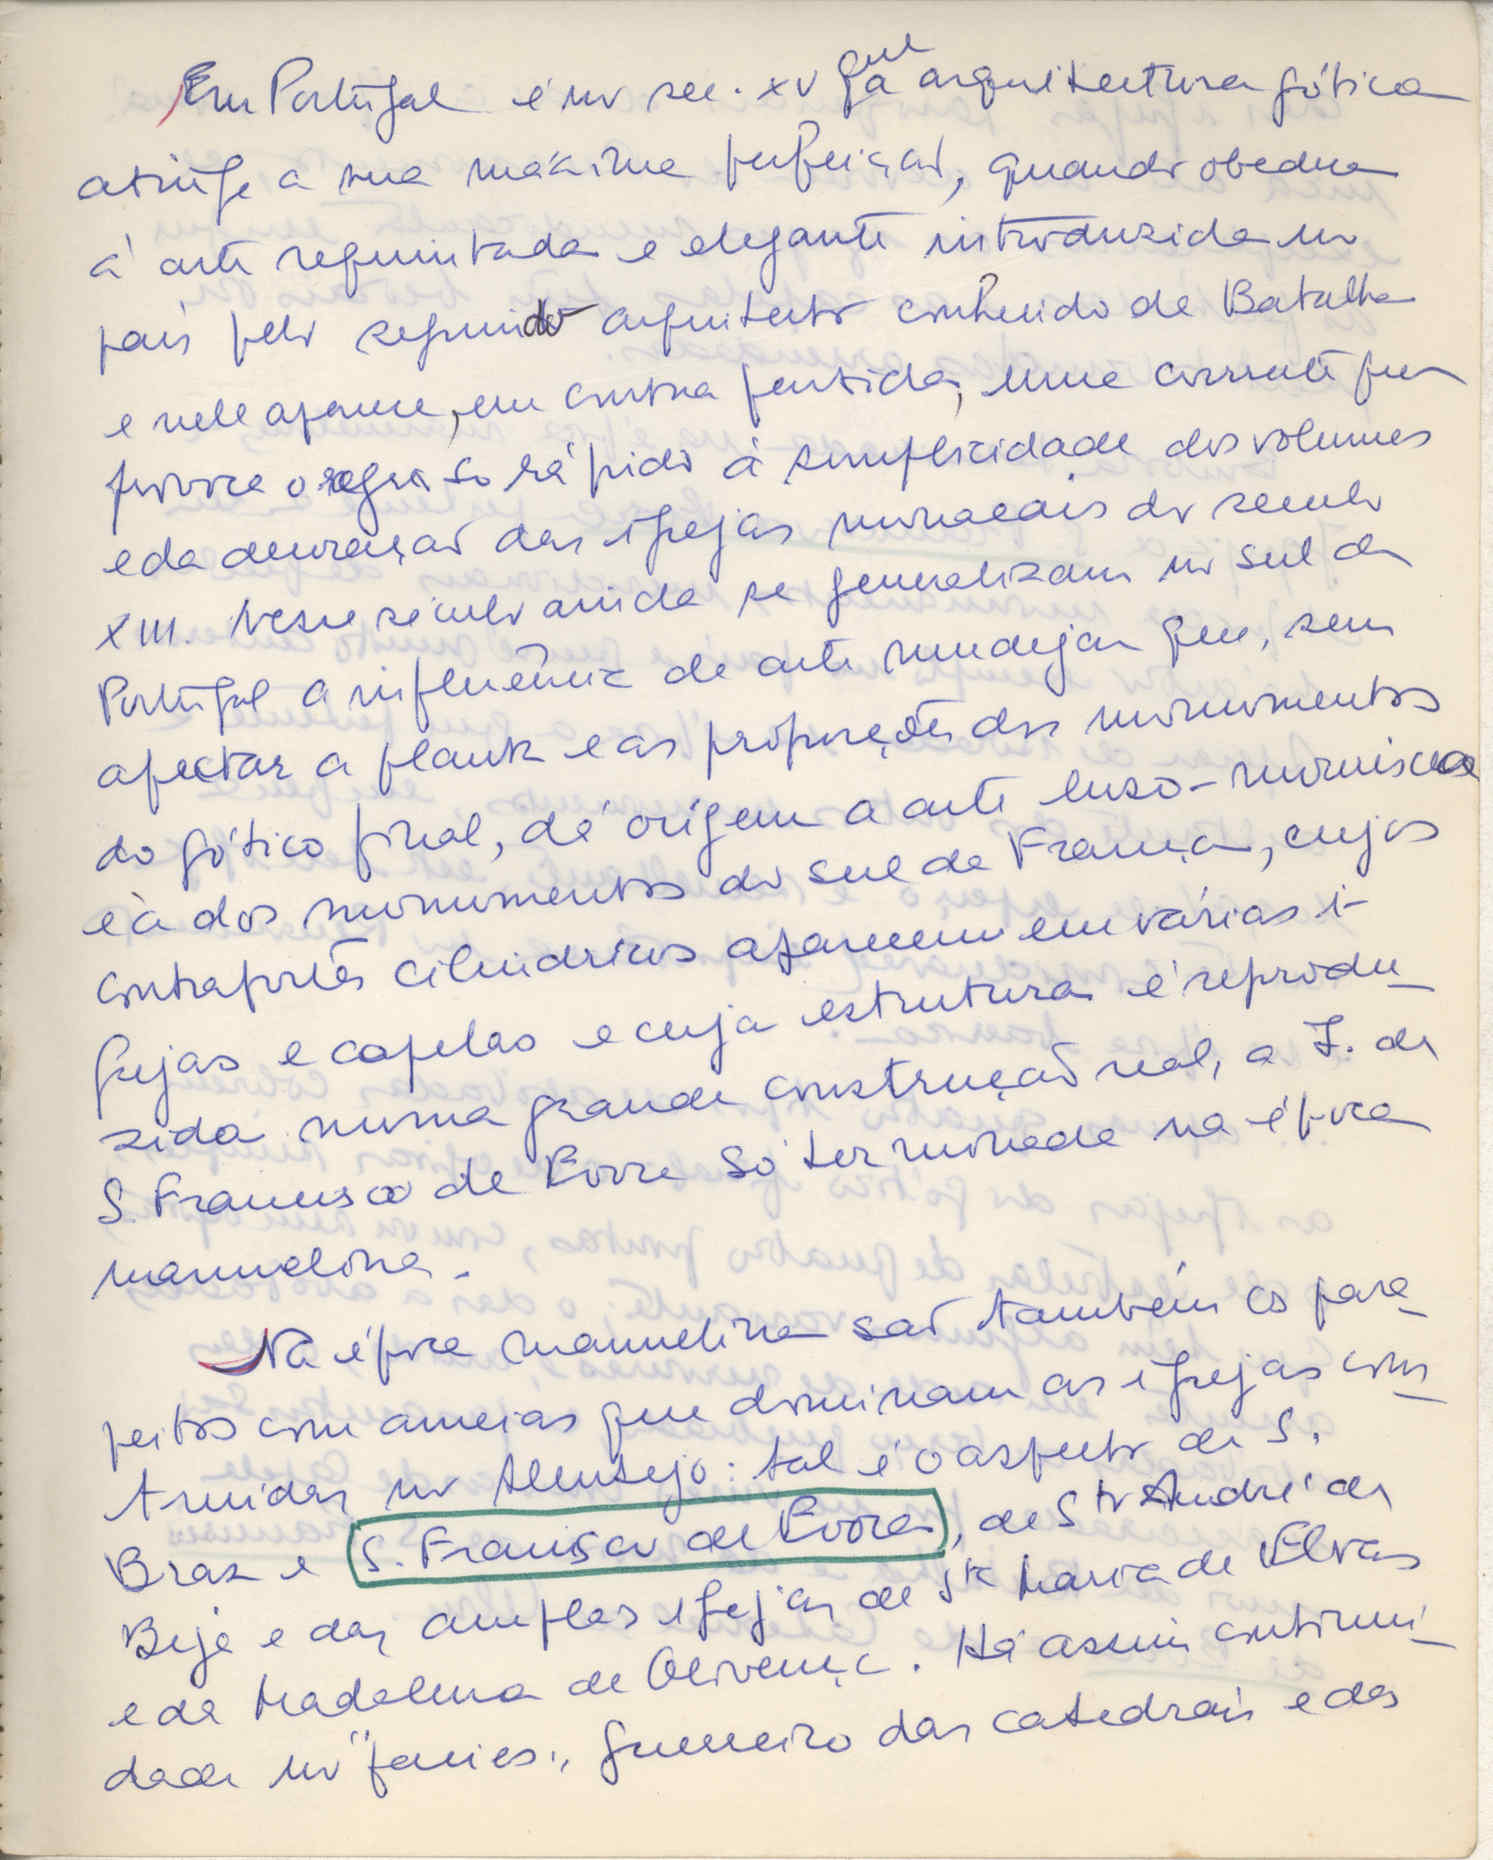 Em Portugal é no sec. XV que a arquitectura gótica
atinge a sua máxima perfeição, quando obedece
á arte requintada e elegante introduzida no
país pelo segundo arquitecto conhecido de Batalha
e nele aparece, em contra partida, uma corrente que
provoca o regresso rápido á simplicidade dos volumes
e da decoração das igrejas monacais do seculo
XIII. Nesse século ainda se generalizam no sul de
Portugal a influência de arte mudejar que, sem
afectar a planta e as proporções dos monumentos
do gótico final, dá origem a arte luso-mourisca
e à dos monumentos do sul de França, cujos
contrafortes cilíndricos aparecem em várias i-
grejas e capelas e cuja estrutura é reprodu-
zida numa grande construção real, a I. de
S. Francisco de Evora só terminada na época
manuelina.
Na época manuelina são também os para-
peitos com ameias que dominam as igrejas cons-
truidas no Alentejo: tal é o aspecto de S.
Braz e S. Francisco de Evora, de Sto André de
Beja e das amplas igrejas de Sta Maria de Elvas
e da Madalena de Olivença. Há assim continui-
dade no "facies" guerreiro das catedrais e das